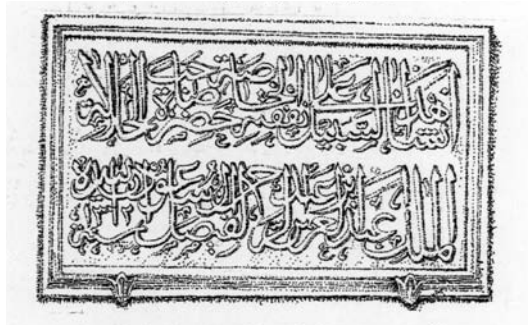 أنشأ هذا السبيل على نفقته الخاصة حضرة صاحب الجلالة
الملك عبد العزيز بن عبد الرحمن الفيصل آل سعود سنة